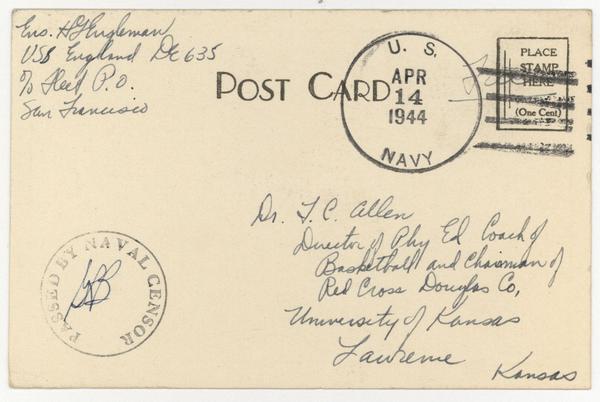 Ens. H G Engleman
USS England DE 635
℅ Fleet P.O.
San Francisco
POST CARD
U. S.
APR
14
1944
NAVY
PLACE
STAMP
HERE
(One Cent)
Dr. F. C. Allen
Director of Phy Ed Coach of
Basketball and Chairman of
Red Cross Douglas Co,
University of Kansas
Lawrence
Kansas
PASSED BY NAVAL CENSOR